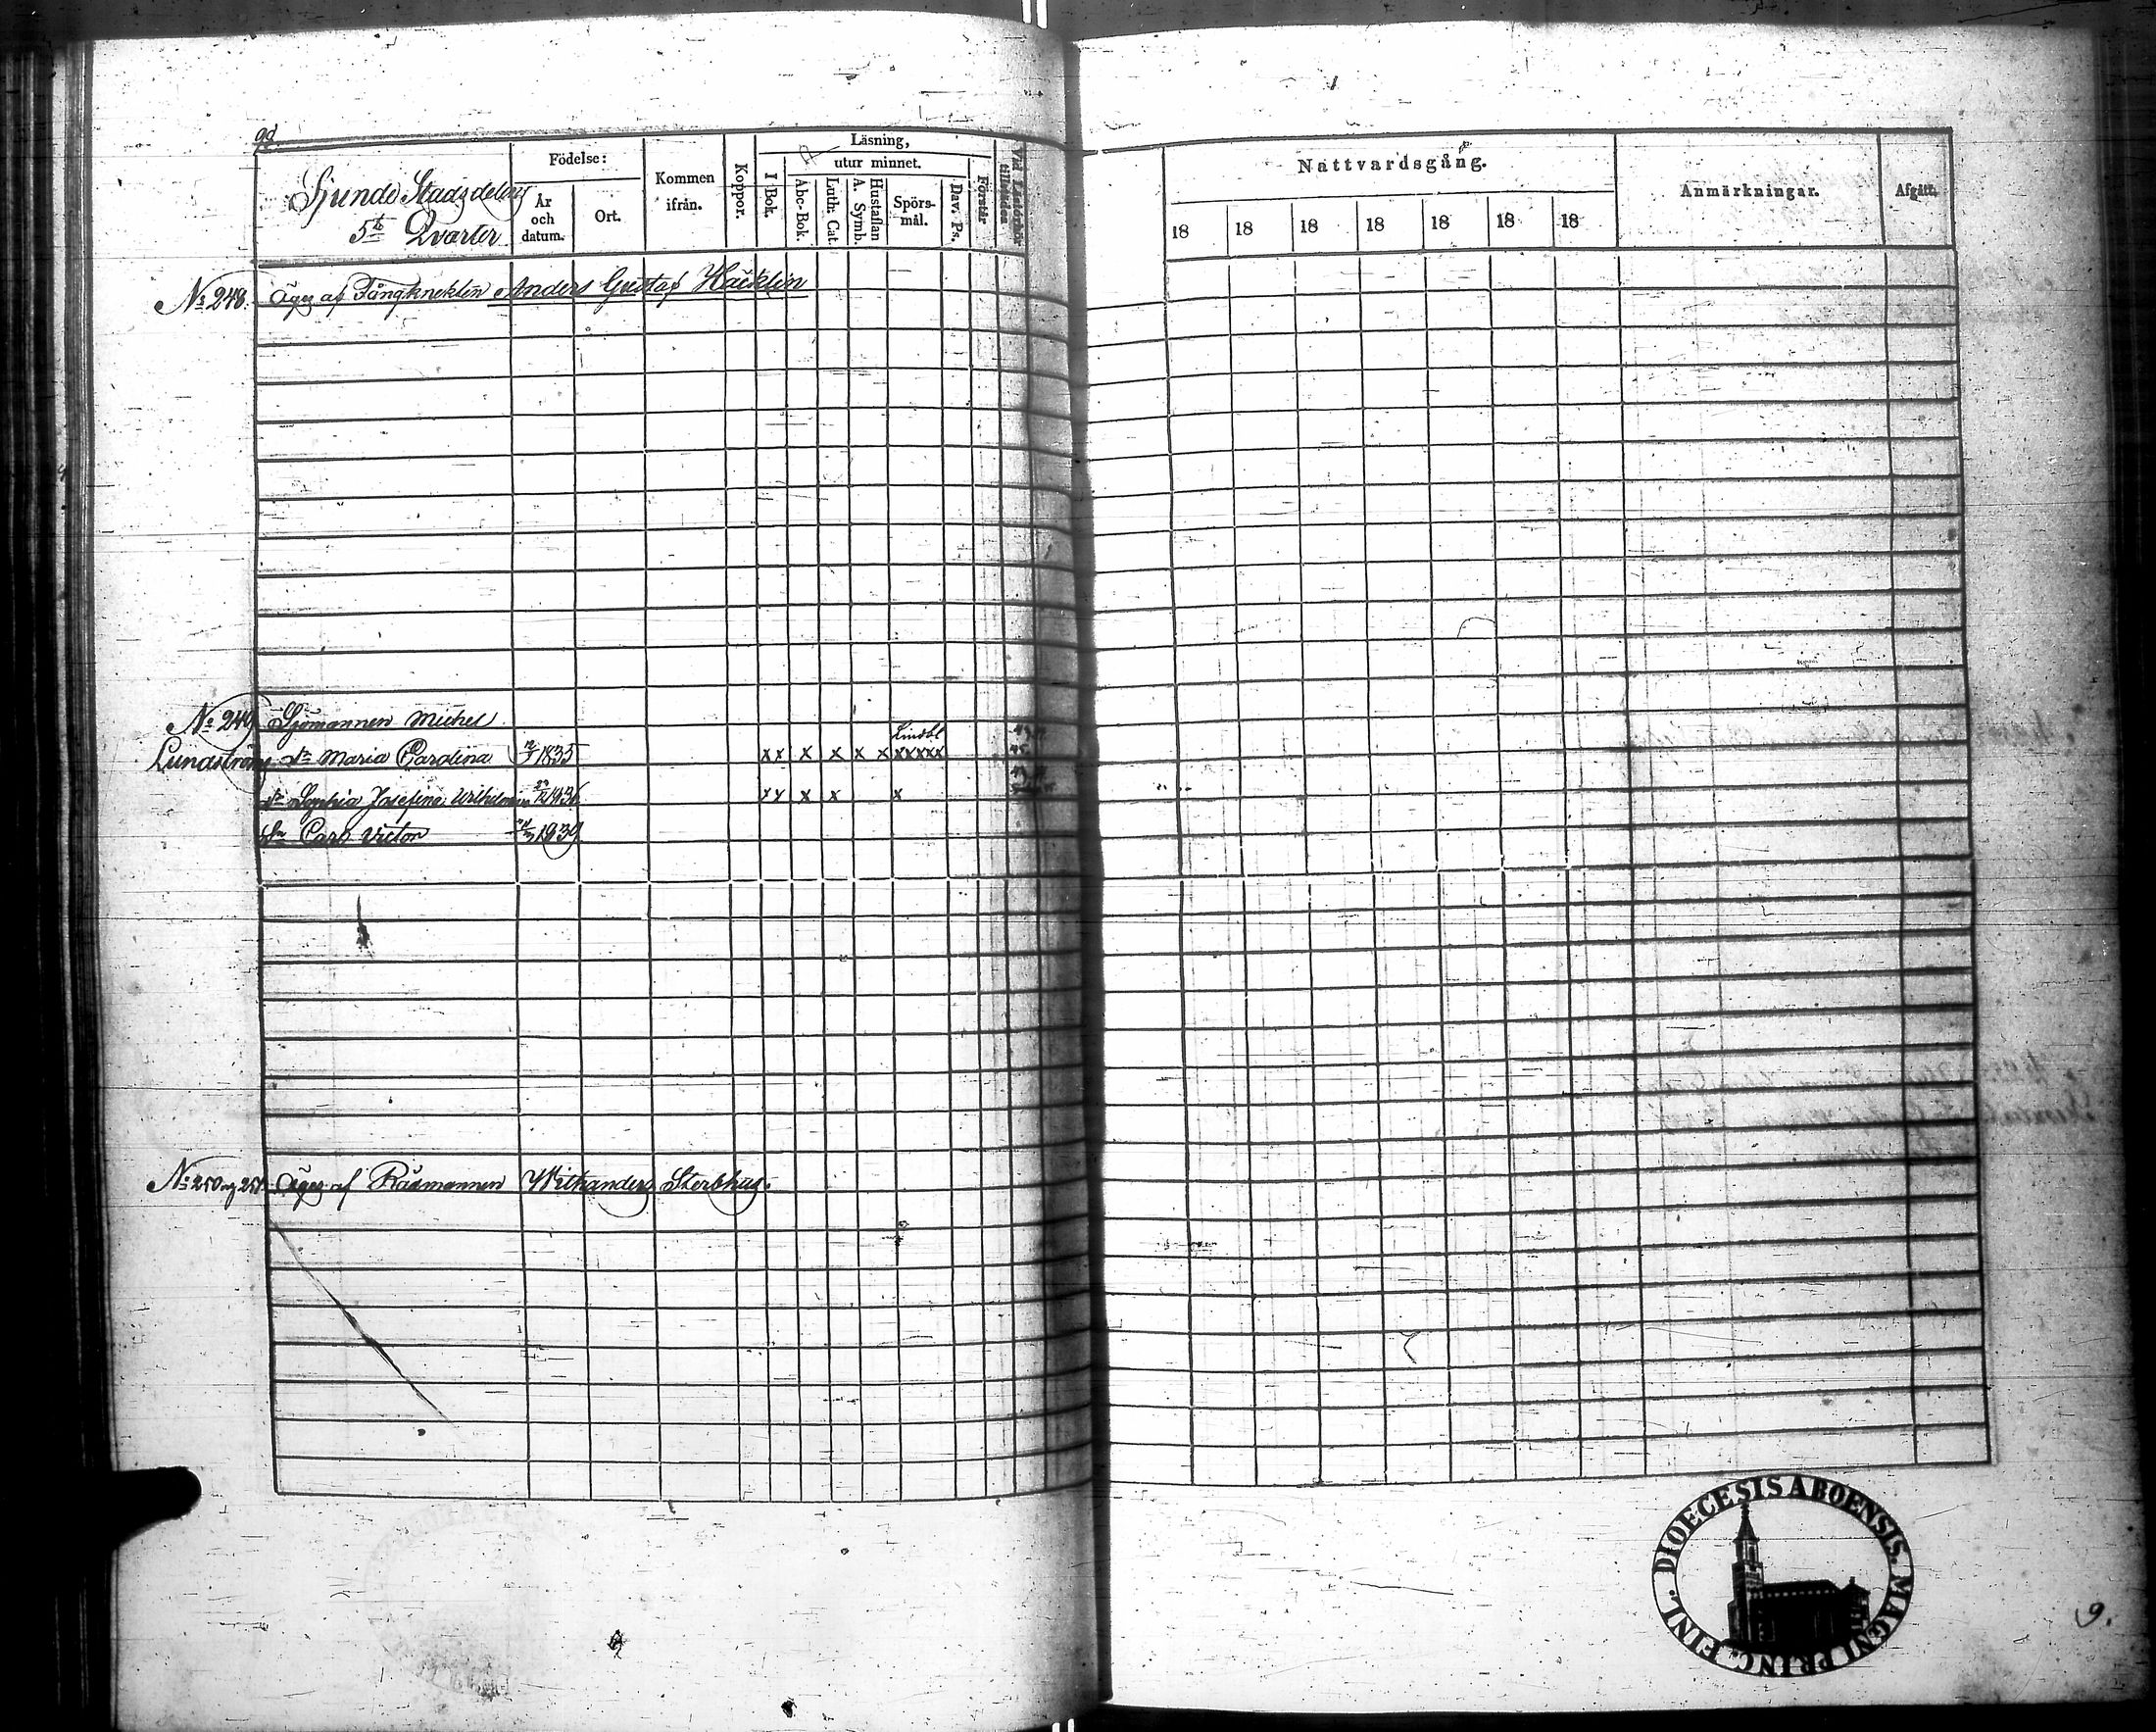 Sjunde Stadsdelens
5te Qvarter
Födelse:
År och datum.
Ort.
Kommen ifrån.
Koppor.
Läsning,
I Bok.
utur minnet.
Abc-Bok.
Luth: Cat.
Hustaflan A. Symb.
Spörsmål.
Dav. Ps.
Förstår
Vid Läsförhör tillstädes
Nattvardsgång.
18 18 18 18 18 18 18
Anmärkningar.
Afgått.
No 248. Äges af Fångknekten Anders Gustaf Häcklin
No 249 Sjömannen Michel
Lundström
Lindbl
dr Maria Carolina 1835 x x x x x x x x x x x
dr Sophia Josefina Wilhelmina 1836 x x x x x
Sn Carl Victor 1839
No 250 og 251 Äges af Rådmannen Withanders Sterbhus.
DIOECESIS ABOENSIS. MAGNI PRINC. FINL.
9.